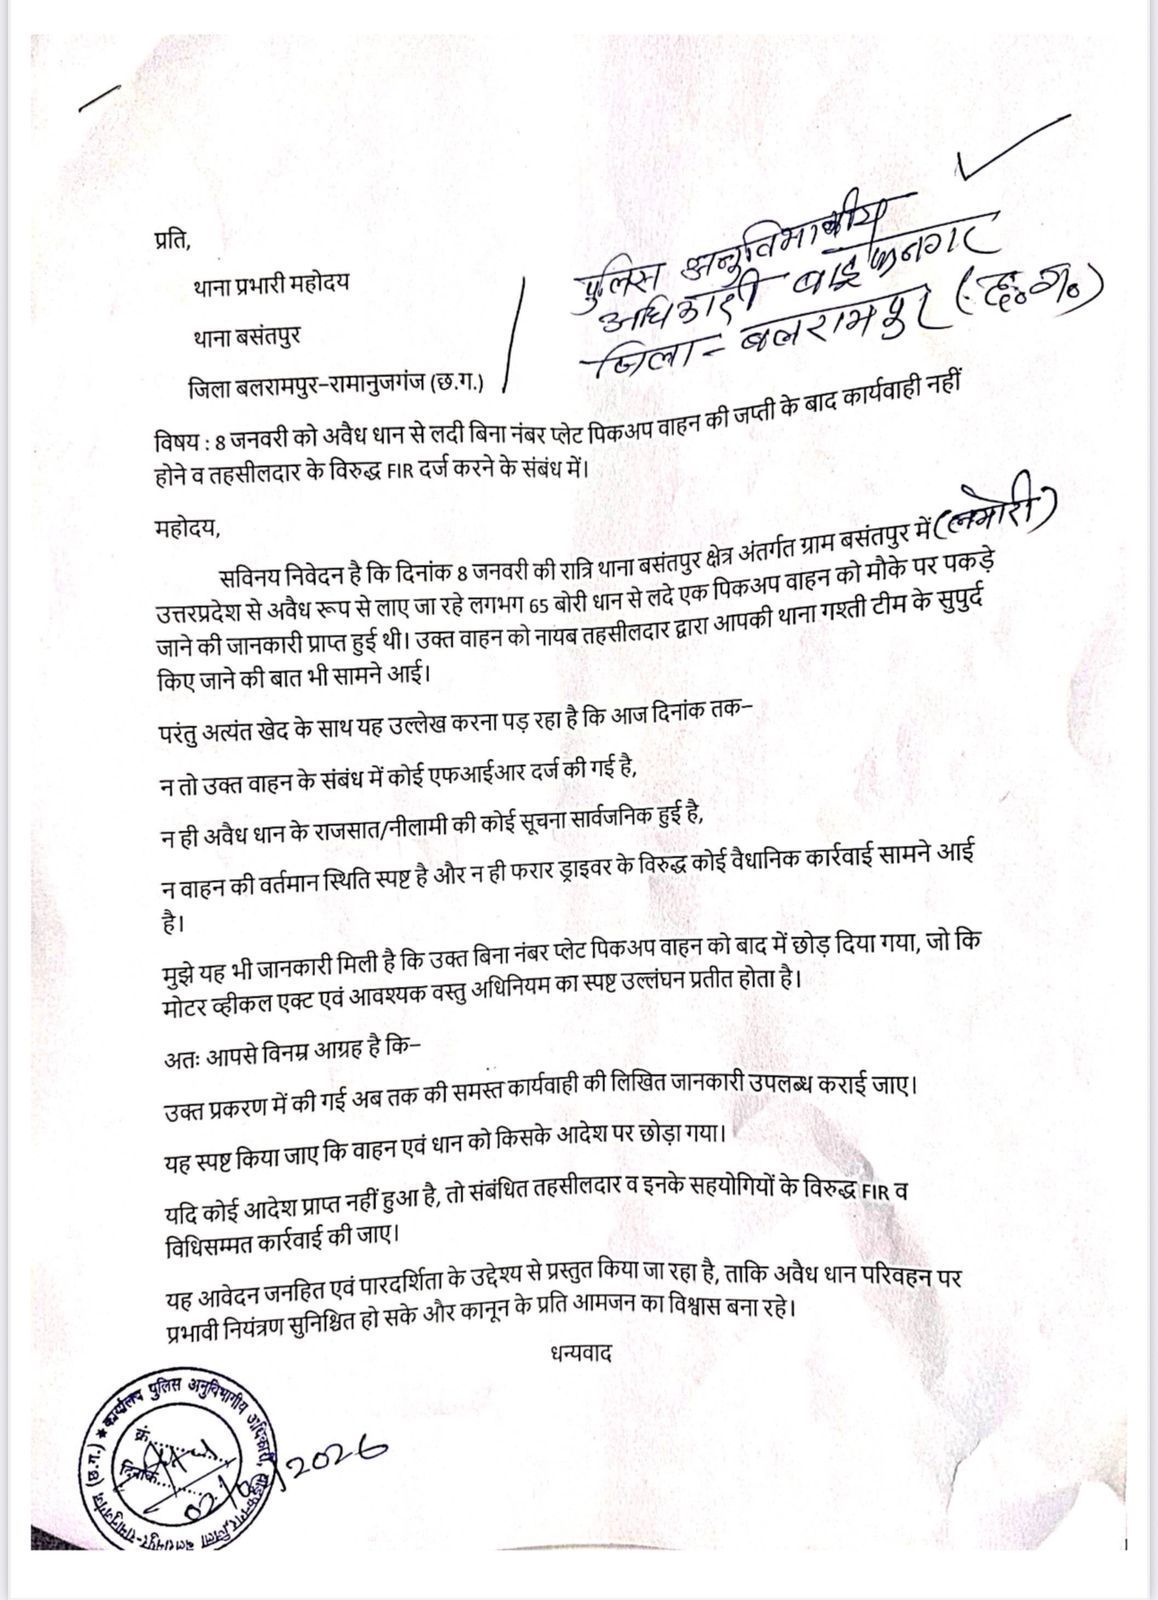 प्रति,
थाना प्रभारी महोदय
थाना बसंतपुर
जिला बलरामपुर–रामानुजगंज (छ.ग.)
पुलिस अनुविभागीय
अधिकारी वाड्रफनगर
जिला = बलरामपुर (छ.ग.)
विषय : 8 जनवरी को अवैध धान से लदी बिना नंबर प्लेट पिकअप वाहन की जप्ती के बाद कार्यवाही नहीं
होने व तहसीलदार के विरुद्ध FIR दर्ज करने के संबंध में।
महोदय,
सविनय निवेदन है कि दिनांक 8 जनवरी की रात्रि थाना बसंतपुर क्षेत्र अंतर्गत ग्राम बसंतपुर में
उत्तरप्रदेश से अवैध रूप से लाए जा रहे लगभग 65 बोरी धान से लदे एक पिकअप वाहन को मौके पर पकड़े
जाने की जानकारी प्राप्त हुई थी। उक्त वाहन को नायब तहसीलदार द्वारा आपकी थाना गश्ती टीम के सुपुर्द
किए जाने की बात भी सामने आई।
परंतु अत्यंत खेद के साथ यह उल्लेख करना पड़ रहा है कि आज दिनांक तक–
न तो उक्त वाहन के संबंध में कोई एफआईआर दर्ज की गई है,
न ही अवैध धान के राजसात/नीलामी की कोई सूचना सार्वजनिक हुई है,
न वाहन की वर्तमान स्थिति स्पष्ट है और न ही फरार ड्राइवर के विरुद्ध कोई वैधानिक कार्रवाई सामने आई
है।
मुझे यह भी जानकारी मिली है कि उक्त बिना नंबर प्लेट पिकअप वाहन को बाद में छोड़ दिया गया, जो कि
मोटर व्हीकल एक्ट एवं आवश्यक वस्तु अधिनियम का स्पष्ट उल्लंघन प्रतीत होता है।
अतः आपसे विनम्र आग्रह है कि–
उक्त प्रकरण में की गई अब तक की समस्त कार्यवाही की लिखित जानकारी उपलब्ध कराई जाए।
यह स्पष्ट किया जाए कि वाहन एवं धान को किसके आदेश पर छोड़ा गया।
यदि कोई आदेश प्राप्त नहीं हुआ है, तो संबंधित तहसीलदार व इनके सहयोगियों के विरुद्ध FIR व
विधिसम्मत कार्रवाई की जाए।
यह आवेदन जनहित एवं पारदर्शिता के उद्देश्य से प्रस्तुत किया जा रहा है, ताकि अवैध धान परिवहन पर
प्रभावी नियंत्रण सुनिश्चित हो सके और कानून के प्रति आमजन का विश्वास बना रहे।
धन्यवाद
कार्यालय पुलिस अनुविभागीय अधिकारी,
क्रं.........
दिनांक.........
2026